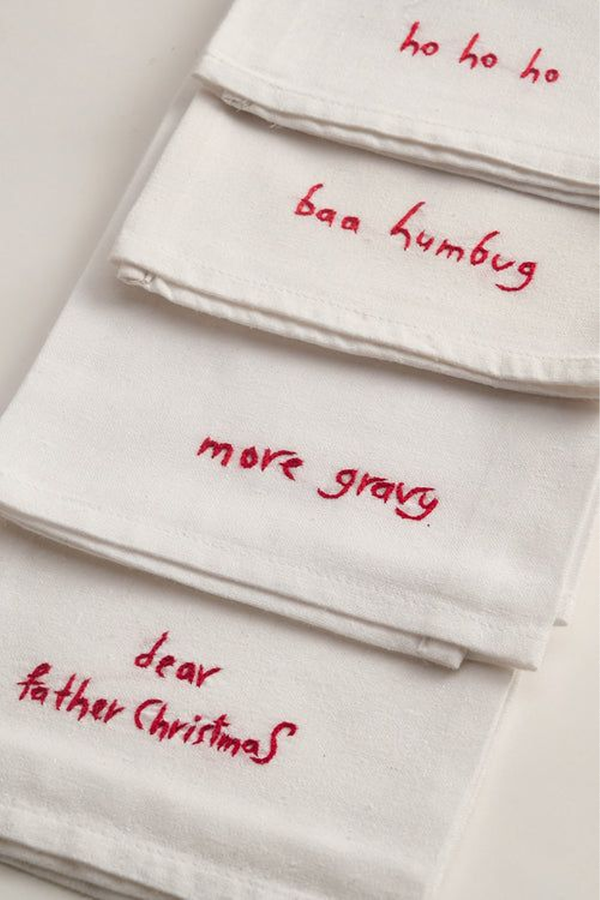 ho ho ho
baa humbug
more gravy
dear
father Christmas